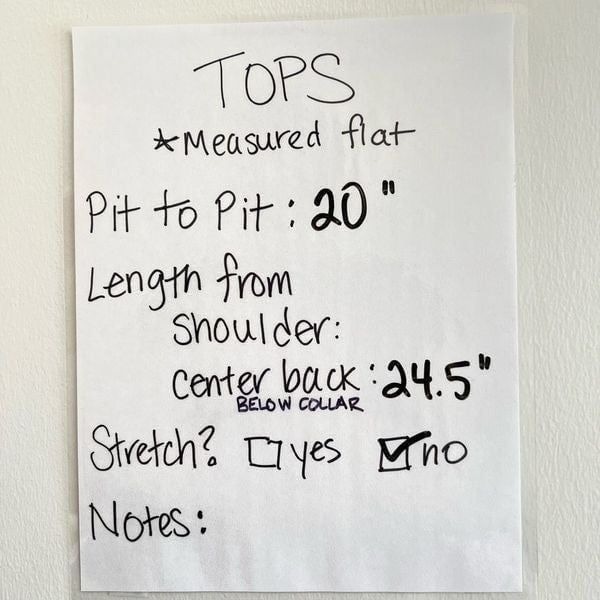 TOPS
*Measured flat
Pit to Pit: 20"
Length from
Shoulder:
Center back: 24.5"
BELOW COLLAR
Stretch? ☐ yes ☑ no
Notes: